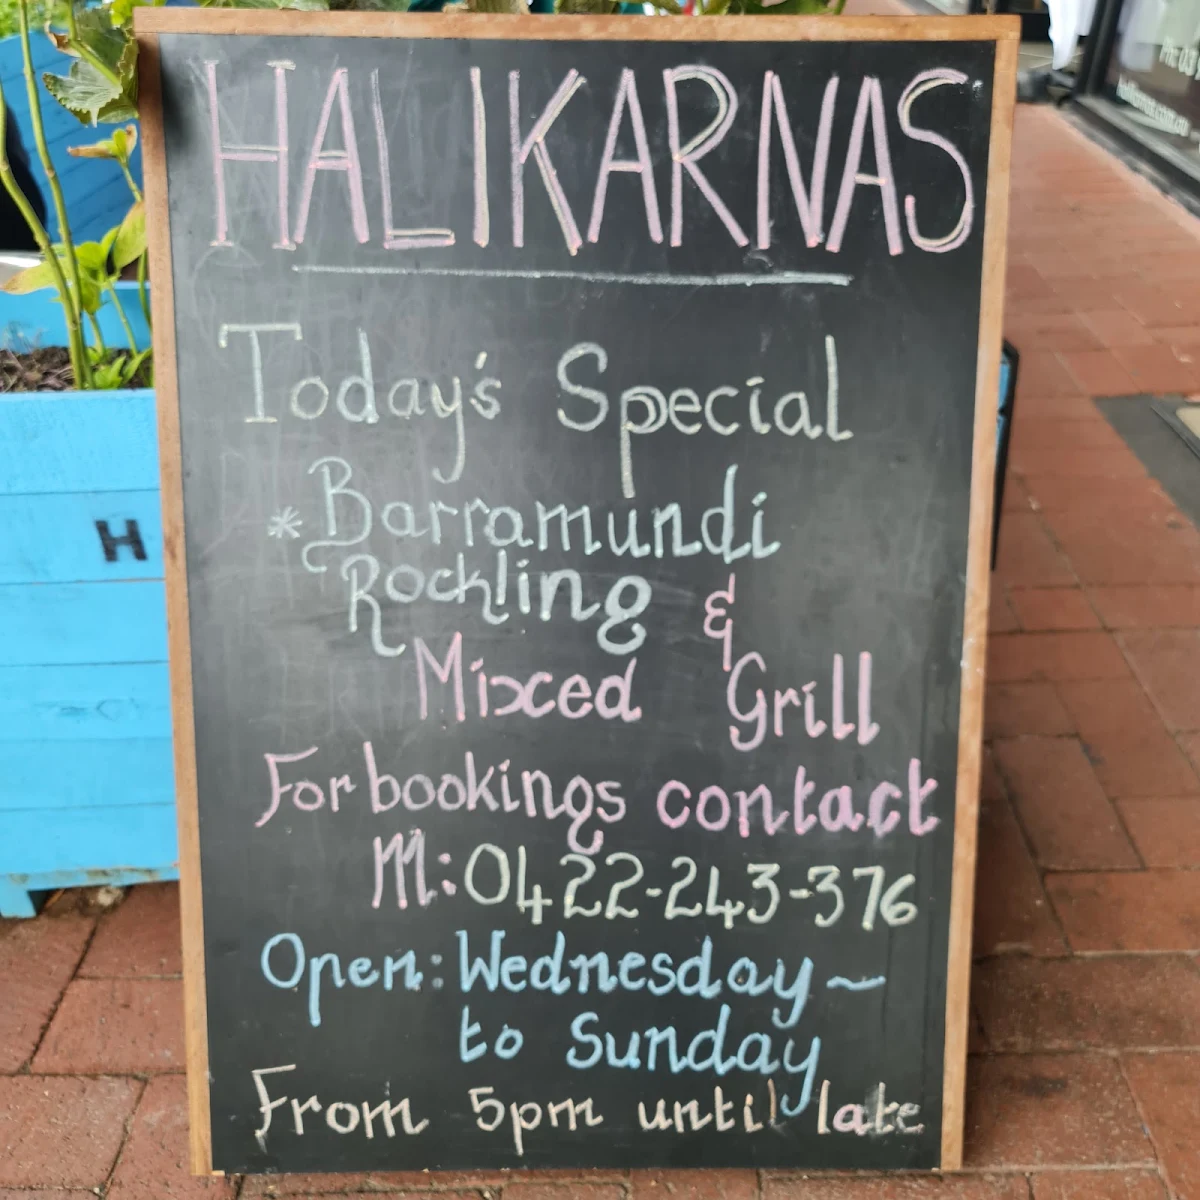 HALIKARNAS
Today's Special
* Barramundi
Rockling &
Mixed Grill
For bookings contact
M: 0422-243-376
Open: Wednesday ~
to Sunday
From 5pm until late
H